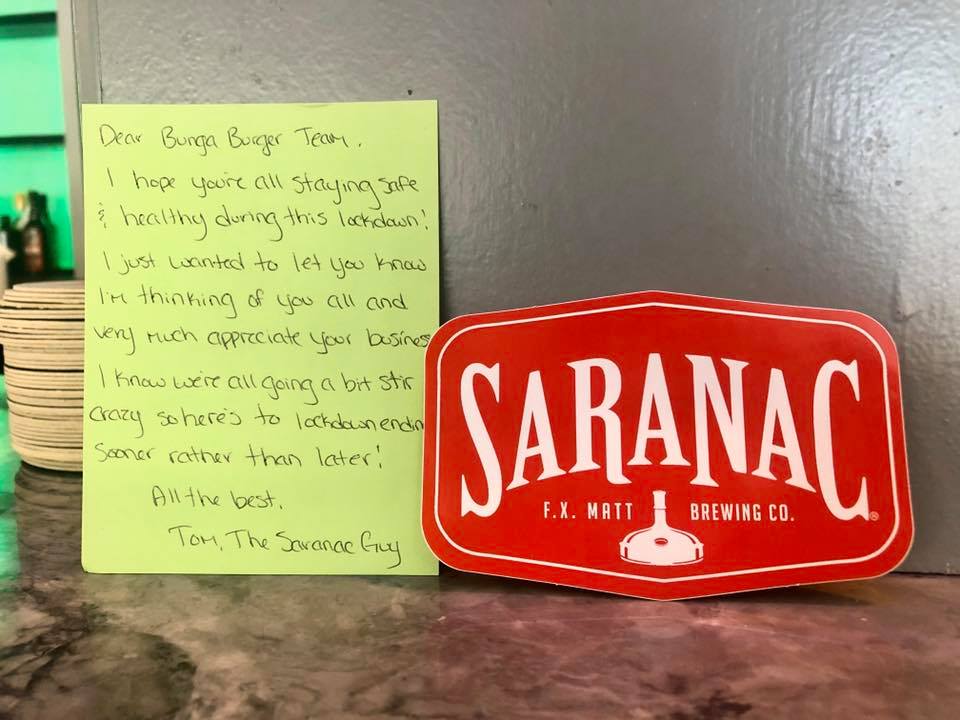 Dear Bunga Burger Team,
I hope you're all staying safe
& healthy during this lockdown!
I just wanted to let you know
I'm thinking of you all and
very much appreciate your busines
I know we're all going a bit stir
crazy so here's to lockdown endin
sooner rather than later!
All the best,
Tom, The Saranac Guy
SARANAC®
F.X. MATT BREWING CO.